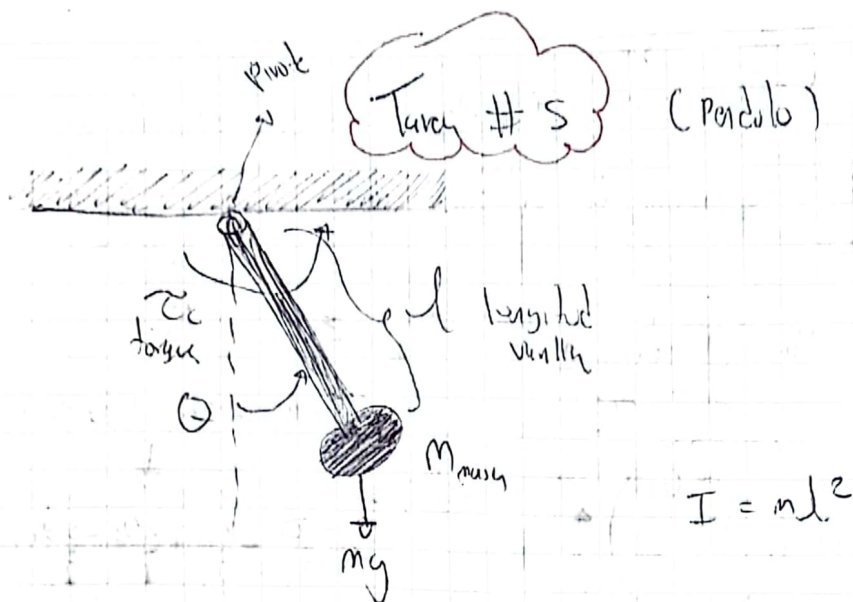 pivote
Tarea # 5
(Pendulo)
τc
torque
l longitud
varilla
θ
M masa
I = ml²
mg